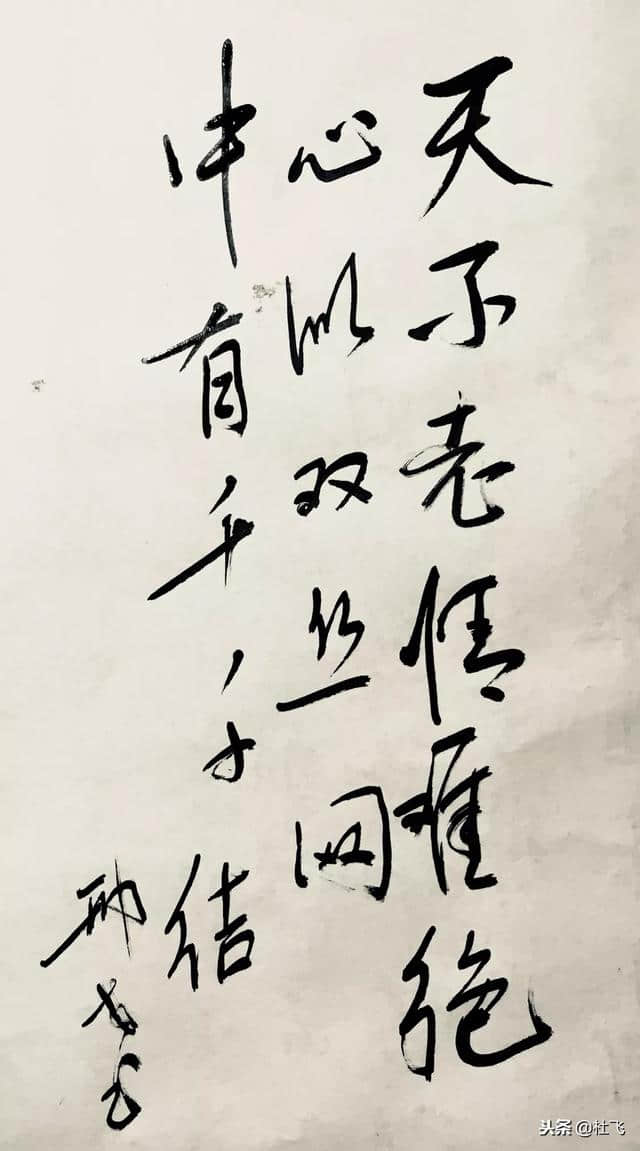 天不老情难绝
心似双丝网
中有千千结
头条@杜飞